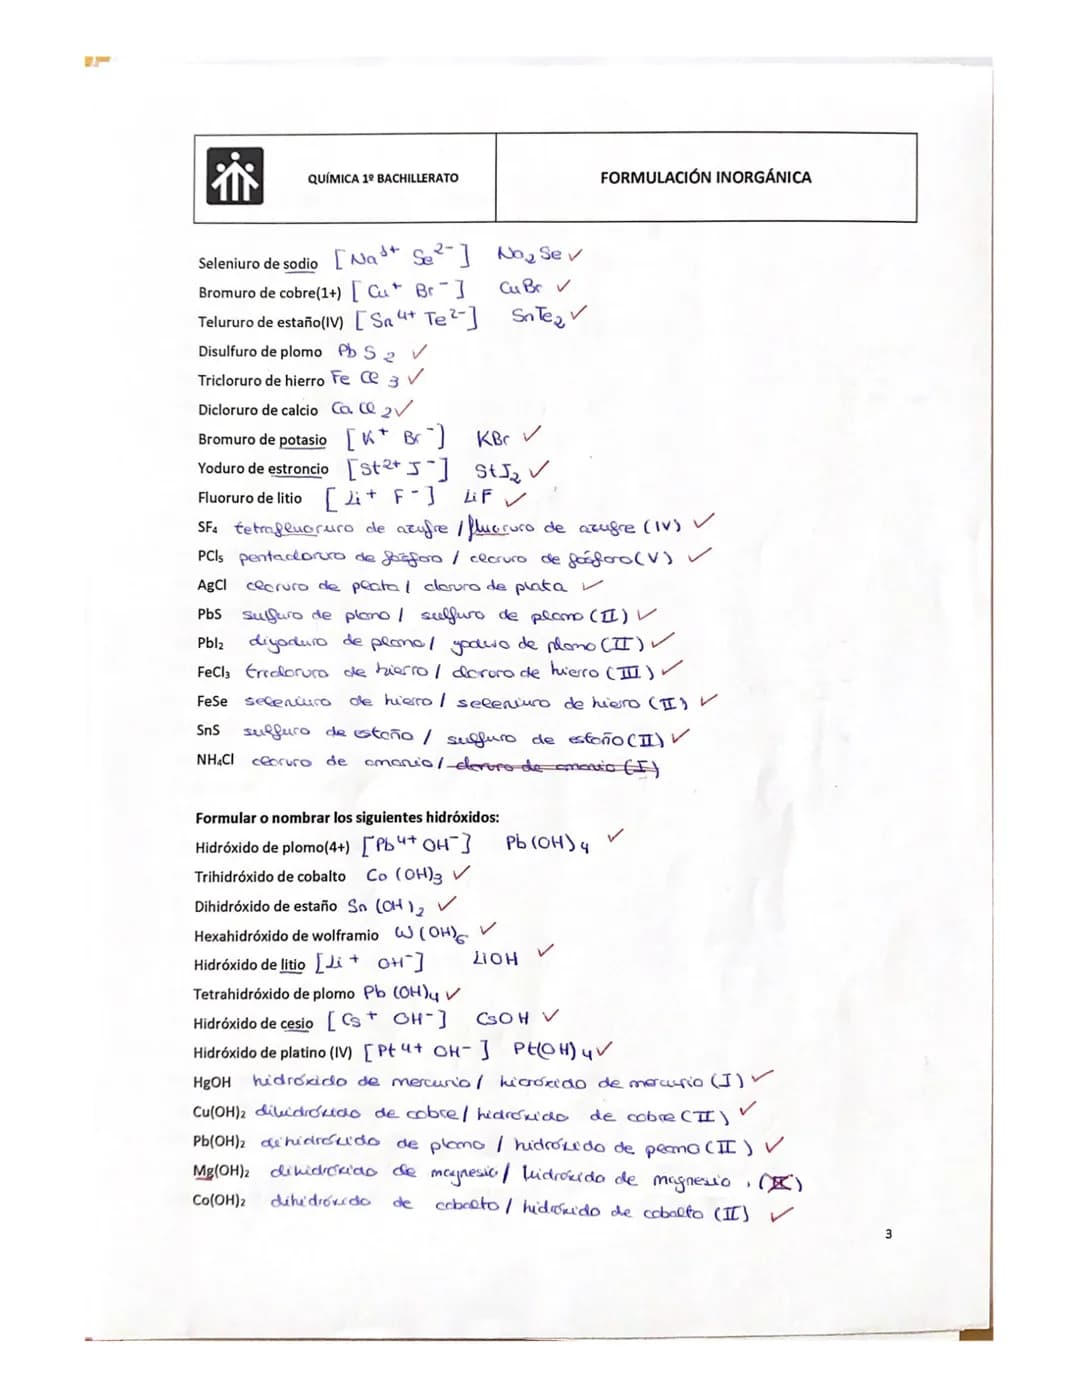 QUÍMICA 1º BACHILLERATO
FORMULACIÓN INORGÁNICA
Seleniuro de sodio [Na¹⁺ Se²⁻] Na₂Se ✓
Bromuro de cobre(1+) [Cu⁺ Br⁻] CuBr ✓
Telururo de estaño(IV) [Sn⁴⁺ Te²⁻] SnTe₂ ✓
Disulfuro de plomo PbS₂ ✓
Tricloruro de hierro FeCl₃ ✓
Dicloruro de calcio CaCl₂ ✓
Bromuro de potasio [K⁺ Br⁻] KBr ✓
Yoduro de estroncio [St²⁺ I⁻] StI₂ ✓
Fluoruro de litio [Li⁺ F⁻] LiF ✓
SF₄ tetrafluoruro de azufre / fluoruro de azufre (IV) ✓
PCl₅ pentacloruro de fósforo / cloruro de fósforo (V) ✓
AgCl cloruro de plata / cloruro de plata ✓
PbS sulfuro de plomo / sulfuro de plomo (II) ✓
PbI₂ diyoduro de plomo / yoduro de plomo (II) ✓
FeCl₃ tricloruro de hierro / cloruro de hierro (III) ✓
FeSe seleniuro de hierro / seleniuro de hierro (II) ✓
SnS sulfuro de estaño / sulfuro de estaño (II) ✓
NH₄Cl cloruro de amonio / cloruro de amonio (I)
Formular o nombrar los siguientes hidróxidos:
Hidróxido de plomo(4+) [Pb⁴⁺ OH⁻] Pb(OH)₄ ✓
Trihidróxido de cobalto Co(OH)₃ ✓
Dihidróxido de estaño Sn(OH)₂ ✓
Hexahidróxido de wolframio W(OH)₆ ✓
Hidróxido de litio [Li⁺ OH⁻] LiOH ✓
Tetrahidróxido de plomo Pb(OH)₄ ✓
Hidróxido de cesio [Cs⁺ OH⁻] CsOH ✓
Hidróxido de platino (IV) [Pt⁴⁺ OH⁻] Pt(OH)₄ ✓
HgOH hidróxido de mercurio / hidróxido de mercurio (I) ✓
Cu(OH)₂ dihidróxido de cobre / hidróxido de cobre (II) ✓
Pb(OH)₂ dihidróxido de plomo / hidróxido de plomo (II) ✓
Mg(OH)₂ dihidróxido de magnesio / hidróxido de magnesio (II)
Co(OH)₂ dihidróxido de cobalto / hidróxido de cobalto (II) ✓
3